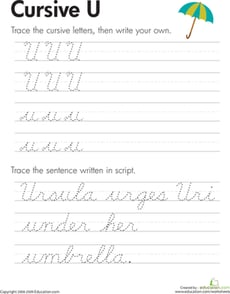 Cursive U
Trace the cursive letters, then write your own.
U U U
U U U
u u u
u u u
Trace the sentence written in script.
Ursula urges Uri
under her
umbrella.
Created by:
education.com